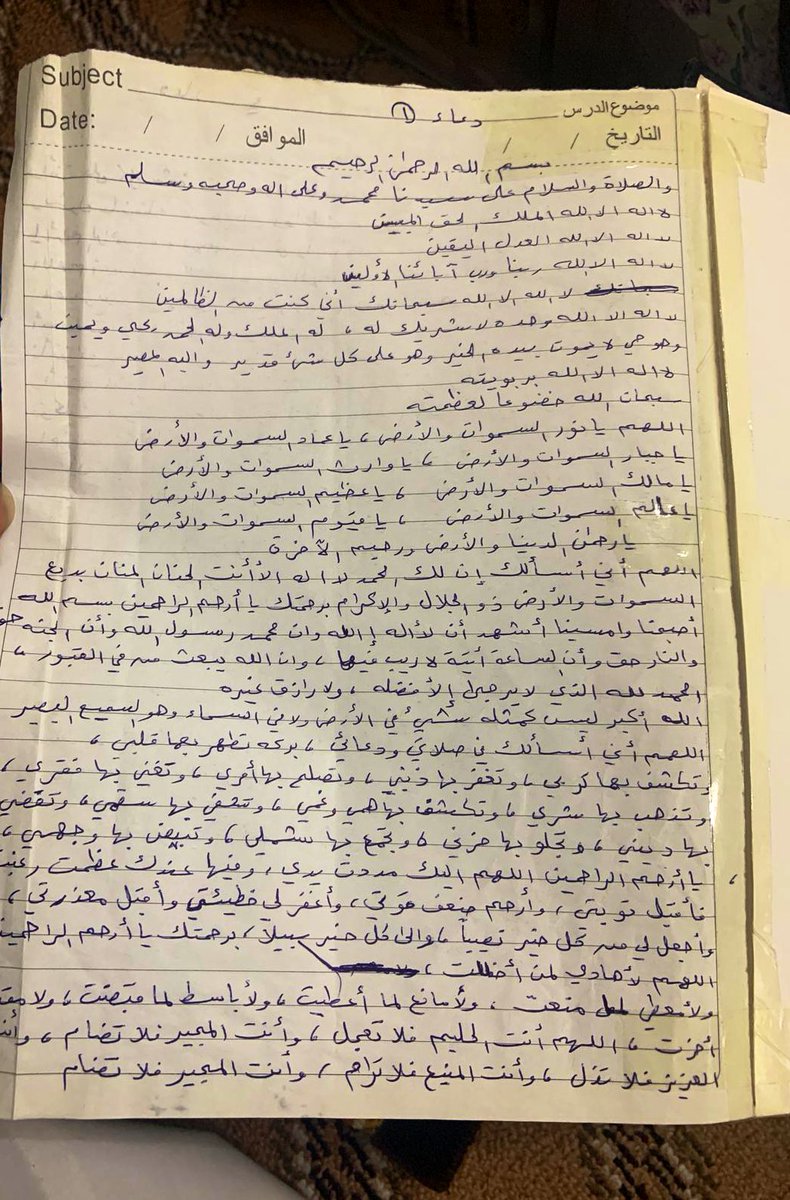 Subject موضوع الدرس
دعاء ①
Date: / / الموافق / / التاريخ
بسم الله الرحمن الرحيم
والصلاة والسلام على سيدنا محمد وعلى اله وصحبه وسلم
لا اله الا الله الملك الحق المبين
لا اله الا الله العدل اليقين
لا اله الا الله ربنا ورب آبائنا الأولين
لا الله الا الله سبحانك أني كنت من الظالمين
لا اله الا الله وحده لا شريك له ، له الملك وله الحمد يحي ويميت
وهو حي لا يموت بيده الخير وهو على كل شئ قدير واليه المصير
لا اله الا الله بربوبيته
سبحان الله خضوعاً لعظمته
اللهم يا نور السموات والأرض ، يا عماد السموات والأرض
يا جبار السموات والأرض ، يا وارث السموات والأرض
يا مالك السموات والأرض ، يا عظيم السموات والأرض
يا عالم السموات والأرض ، يا قيوم السموات والأرض
يا رحمن الدنيا والأرض ورحيم الآخرة
اللهم أني أسألك إن لك الحمد لا اله الأ أنت الحنان المنان بديع
السموات والأرض ذو الجلال والإكرام برحمتك يا أرحم الراحمين بسم الله
أصبحنا وامسينا أشهد أن لا أله إ الله وان محمد رسول الله وأن الجنه
والنار حق وأن الساعة أتية لا ريب فيها ، وان الله يبعث من في القبور ،
الحمد لله الذي لا يرجى الأ فضله ، ولا رازق غيره
الله أكبر ليس كمثله شئ في الأرض ولا في السماء وهو السميع البصير
اللهم أني أسألك في صلاتي ودعائي ، بركه تطهر بها قلبي ،
وتكشف بها كربي ، وتغفر بها ذنبي ، وتصلح بها أمري ، وتغني بها فقري ،
وتذهب بها شري ، وتكشف بها همي وغمي ، وتشفي بها سقمي ، وتقضي
بها ديني ، وتجلو بها حزني ، وتجمع بها شملي ، وتبيض بها وجهي ،
يا أرحم الراحمين اللهم اليك مددت يدي ، وفيما عندك عظمت
فأقبل توبتي ، وأرحم ضعف قوتي ، وأغفر لي خطيئتي وأقبل معذرتي ،
وأجعل لي من كل خير نصيباً ، والى كل خير سبيلاً ، برحمتك يا أرحم
اللهم لا هادي لمن أضللت ،
ولا معطي لما منعت ، ولأ مانع لما أعطيت ، ولأ باسط لما قبضت ، ولا
أخرت ، اللهم أنت الحليم فلا تعجل ، وأنت المجير فلا تضام ،
العزيز فلا تذل ، وأنت المنيع فلا ترام ، وأنت المجير فلا تضام